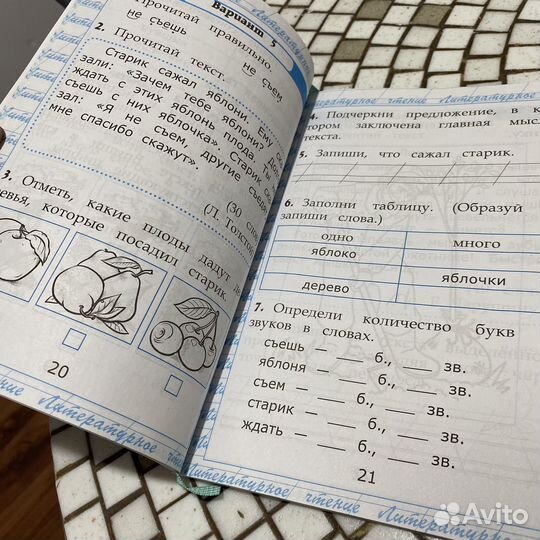 Литературное
Вариант 5
Прочитай правильно.
не съешь не съем
2. Прочитай текст.
Старик сажал яблони. Ему ска
зали: «Зачем тебе яблони? Долго
ждать с этих яблонь плода. Ты не
съешь с них яблочка». Старик ска
зал: «Я не съем, другие съедят,
мне спасибо скажут».
(30 слов)
(Л. Толстой)
3. Отметь, какие плоды дадут де
ревья, которые посадил старик.
20
чтение Литературное
Литературное чтение Литературное
4. Подчеркни предложение, в к
тором заключена главная мыс
текста.
5. Запиши, что сажал старик.
6. Заполни таблицу. (Образуй
запиши слова.)
одно много
яблоко
яблочки
дерево
7. Определи количество букв
звуков в словах.
съешь – ___ б., ___ зв.
яблоня – ___ б., ___ зв.
съем – ___ б., ___ зв.
старик – ___ б., ___ зв.
ждать – ___ б., ___ зв.
21
Литературное чтение Литературное
Avito